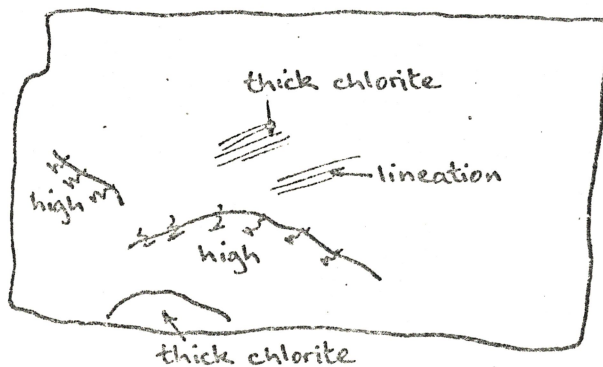 thick chlorite
lineation
high
high
thick chlorite